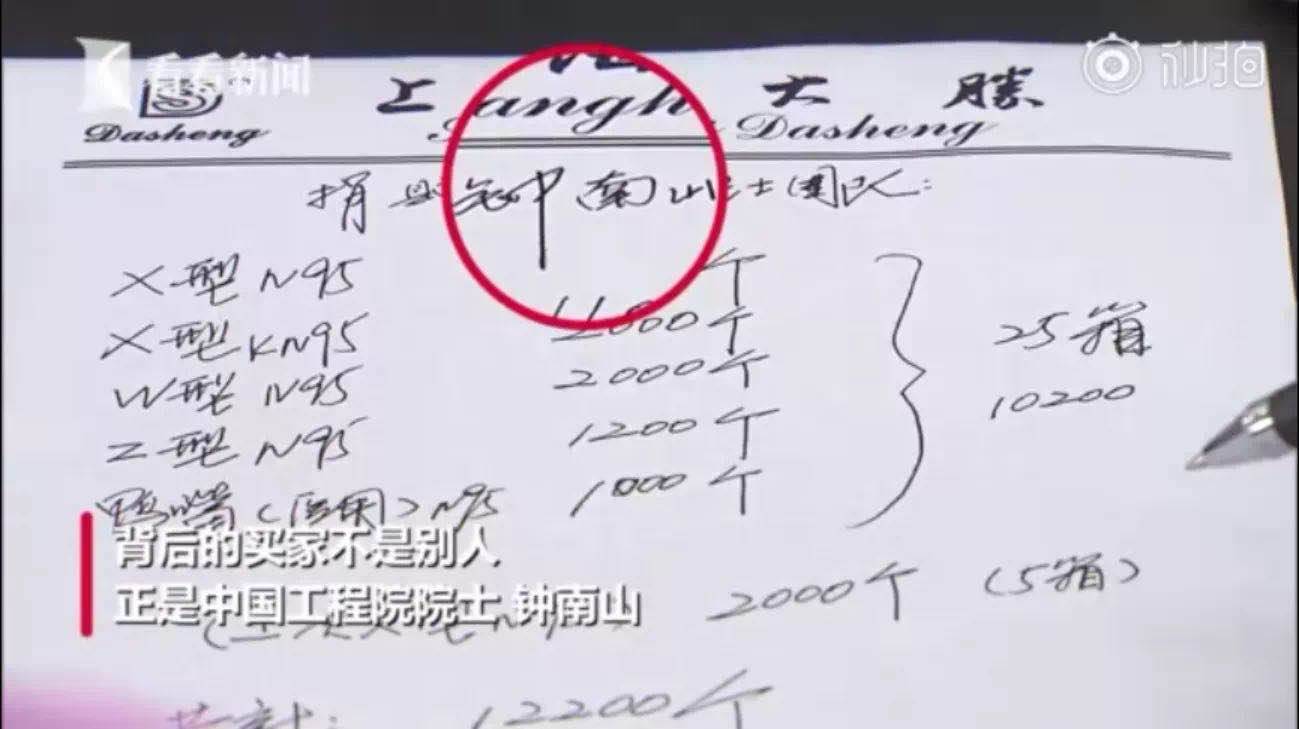 看看新闻 秒拍
上 大 勝
Dasheng angh Dasheng
捐 钟南山 士团队:
X型 N95 个
X型 KN95 个
W型 N95 2000个
Z型 N95 1200个
鸭嘴(医用) N95 1000个
25箱
10200
背后的买家不是别人
正是中国工程院院士 钟南山
2000个 (5箱)
共计: 12200个